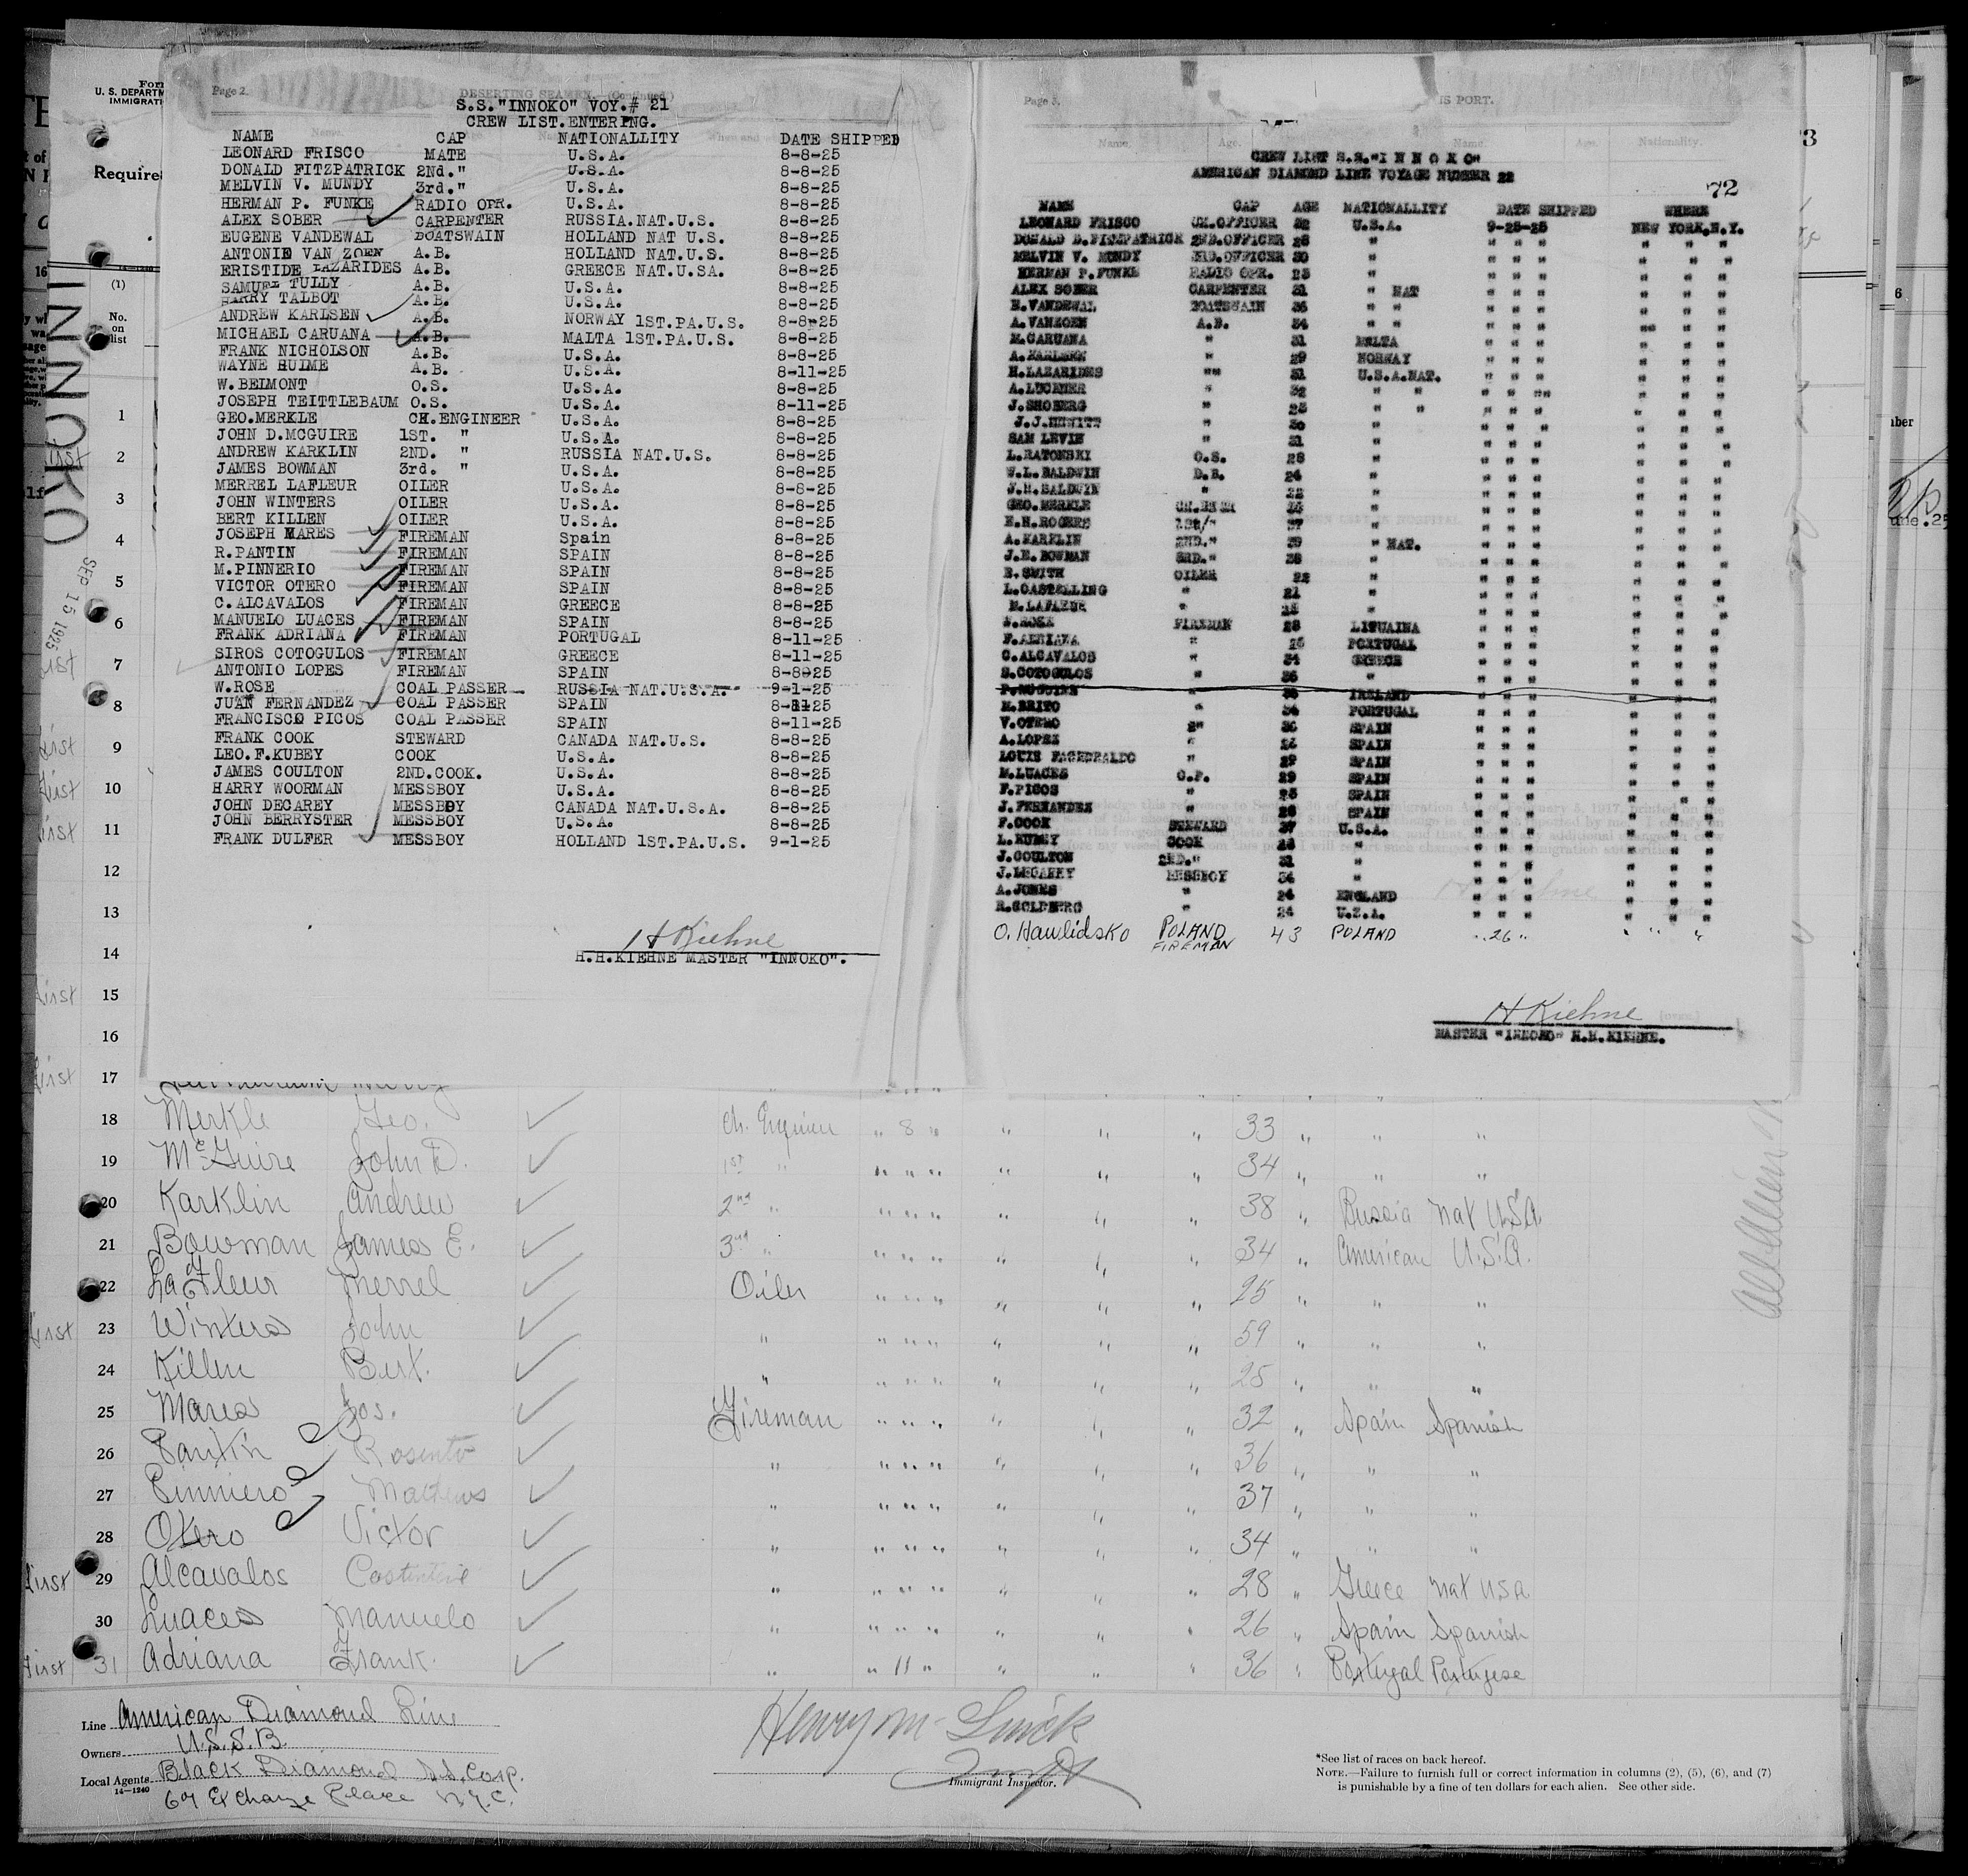 Form
U. S. DEPARTM
IMMIGRATI
Require
INNOKO
SEP 15 1925
(1)
No.
on
list
Page 2.
DESERTING SEAMEN.—(Continued)
S.S."INNOKO" VOY.# 21
CREW LIST.ENTERING.
NAME CAP NATIONALLITY DATE SHIPPED
LEONARD FRISCO MATE U.S.A. 8-8-25
DONALD FITZPATRICK 2Nd." U.S.A. 8-8-25
MELVIN V. MUNDY 3rd." U.S.A. 8-8-25
HERMAN P. FUNKE RADIO OPR. U.S.A. 8-8-25
ALEX SOBER CARPENTER RUSSIA.NAT.U.S. 8-8-25
EUGENE VANDEWAL BOATSWAIN HOLLAND NAT U.S. 8-8-25
ANTONIE VAN ZOEN A.B. HOLLAND NAT.U.S. 8-8-25
ERISTIDE LAZARIDES A.B. GREECE NAT.U.SA. 8-8-25
SAMUEL TULLY A.B. U.S.A. 8-8-25
HARRY TALBOT A.B. U.S.A. 8-8-25
ANDREW KARLSEN A.B. NORWAY 1ST.PA.U.S. 8-8-25
MICHAEL CARUANA A.B. MALTA 1ST.PA.U.S. 8-8-25
FRANK NICHOLSON A.B. U.S.A. 8-8-25
WAYNE HUIME A.B. U.S.A. 8-11-25
W.BEIMONT O.S. U.S.A. 8-8-25
JOSEPH TEITTLEBAUM O.S. U.S.A. 8-11-25
GEO.MERKLE CH.ENGINEER U.S.A. 8-8-25
JOHN D.MCGUIRE 1ST. " U.S.A. 8-8-25
ANDREW KARKLIN 2ND. " RUSSIA NAT.U.S. 8-8-25
JAMES BOWMAN 3rd. " U.S.A. 8-8-25
MERREL LAFLEUR OILER U.S.A. 8-8-25
JOHN WINTERS OILER U.S.A. 8-8-25
BERT KILLEN OILER U.S.A. 8-8-25
JOSEPH MARES FIREMAN Spain 8-8-25
R.PANTIN FIREMAN SPAIN 8-8-25
M.PINNERIO FIREMAN SPAIN 8-8-25
VICTOR OTERO FIREMAN SPAIN 8-8-25
C.ALCAVALOS FIREMAN GREECE 8-8-25
MANUELO LUACES FIREMAN SPAIN 8-8-25
FRANK ADRIANA FIREMAN PORTUGAL 8-11-25
SIROS COTOGULOS FIREMAN GREECE 8-11-25
ANTONIO LOPES FIREMAN SPAIN 8-8-25
W.ROSE COAL PASSER RUSSIA NAT.U.S.A. 9-1-25
JUAN FERNANDEZ COAL PASSER SPAIN 8-1125
FRANCISCO PICOS COAL PASSER SPAIN 8-11-25
FRANK COOK STEWARD CANADA NAT.U.S. 8-8-25
LEO.F.KUBEY COOK U.S.A. 8-8-25
JAMES COULTON 2ND.COOK. U.S.A. 8-8-25
HARRY WOORMAN MESSBOY U.S.A. 8-8-25
JOHN DECAREY MESSBOY CANADA NAT.U.S.A. 8-8-25
JOHN BERRYSTER MESSBOY U.S.A. 8-8-25
FRANK DULFER MESSBOY HOLLAND 1ST.PA.U.S. 9-1-25
H Kiehne
H.H.KIEHNE MASTER "INNOKO".
Page 3.
IS PORT.
Name. Age. Name. Age. Nationality.
CREW LIST S.S."I N N O K O"
AMERICAN DIAMOND LINE VOYAGE NUMBER 22
72
NAME CAP AGE NATIONALLITY DATE SHIPPED WHERE
LEONARD FRISCO CH.OFFICER 32 U.S.A. 9-25-25 NEW YORK,N.Y.
DONALD D.FITZPATRICK 2ND.OFFICER 28 " " " " " " "
MELVIN V. MUNDY 3RD.OFFICER 30 " " " " " " "
HERMAN P.FUNKE RADIO OPR. 25 " " " " " " "
ALEX SOBER CARPENTER 31 " NAT " " " " " "
E.VANDEWAL BOATSWAIN 36 " " " " " " " "
A.VANZOEN A.B. 34 " " " " " " " "
M.CARUANA " 31 MELTA " " " " " "
A.KARLSEN " 29 NORWAY " " " " " "
H.LAZARIDES "" 31 U.S.A.NAT. " " " " " "
A.LUCKNER " 32 " " " " " " " "
J.SHOBERG " 25 " " " " " " " "
J.J.HEWITT " 30 " " " " " " "
SAM LEVIN " 21 " " " " " " "
L.RATONSKI O.S. 28 " " " " " " "
W.L.BALDWIN D.B. 24 " " " " " " "
J.H.BALDWIN " 22 " " " " " " "
GEO.MERKLE " " " " " " "
E.H.ROGERS 1St/" 37 " " " " " " "
A.KARKLIN 2ND." 39 " NAT. " " " " " "
J.E.BOWMAN 3RD." 38 " " " " " " "
E.SMITH OILER 22 " " " " " " "
L.CASTELLING " 21 " " " " " " "
" " " " " " " "
ROSE FIREMAN 28 LITUAINA " " " " " "
F.ADRIANA " PORTUGAL " " " " " "
C.ALCAVALOS " 34 GREECE " " " " " "
S.COTOGULOS " 36 " " " " " " "
" IRELAND " " " " " "
M.BRITO " 34 PORTUGAL " " " " " "
V.OTERO " SPAIN " " " " " "
A.LOPEZ " SPAIN " " " " " "
LOUIS FAGEDRALDO " 29 SPAIN " " " " " "
M.LUACES C.P. 29 SPAIN " " " " " "
F.PICOS " 25 SPAIN " " " " " "
J.FERNANDEZ " 28 SPAIN " " " " " "
F.COOK STEWARD 37 U.S.A. " " " " " "
L.KUBEY COOK " " " " " " "
J.COULTON 2ND." 31 " " " " " " "
J.LEGAREY MESSBOY 34 " " " " " " "
A.JONES " 24 ENGLAND " " " " " "
R.GOLDBERG " 24 U.S.A. " " " " " "
O. Hawlidsko POLAND 43 POLAND " 26 " " " "
FIREMAN
H Kiehne
MASTER "INNOKO" H.H.KIEHNE.
1
2
3
4
5
6
first 7
8
first 9
first 10
first 11
12
13
14
first 15
16
first 17
18 Merkle Geo. Ch. Engineer " 8 " " " " 33 " " "
19 McGuire John D. 1st " " " " " " " " 34 " " "
20 Karklin Andrew 2nd " " " " " " " " 38 " Russia nat U.S.A.
21 Bowman James E. 3rd " " " " " " " " 34 " American U.S.A.
22 LaFleur Merrel Oiler " " " " " " " 25 " " "
first 23 Winters John " " " " " " " " 59 " " "
24 Killen Bert. " " " " " " " " 25 " " "
25 Mares Jos. Fireman " " " " " " " 32 " Spain Spanish
26 Pantin Rosento " " " " " " " " 36 " " "
27 Pinniero Matheus " " " " " " " " 37 " " "
28 Otero Victor " " " " " " " " 34 " " "
first 29 Alcavalos Costintine " " " " " " " " 28 " Greece nat USA
30 Luaces Manuelo " " " " " " " " 26 " Spain Spanish
first 31 Adriana Frank. " " 11 " " " " 36 " Portugal Portugese
Line American Diamond Line
Owners U.S.S.B.
Local Agents Black Diamond S.S. Corp.
14—1240
67 Exchange Place N.Y.C.
Immigrant Inspector.
*See list of races on back hereof.
NOTE.—Failure to furnish full or correct information in columns (2), (5), (6), and (7)
is punishable by a fine of ten dollars for each alien. See other side.